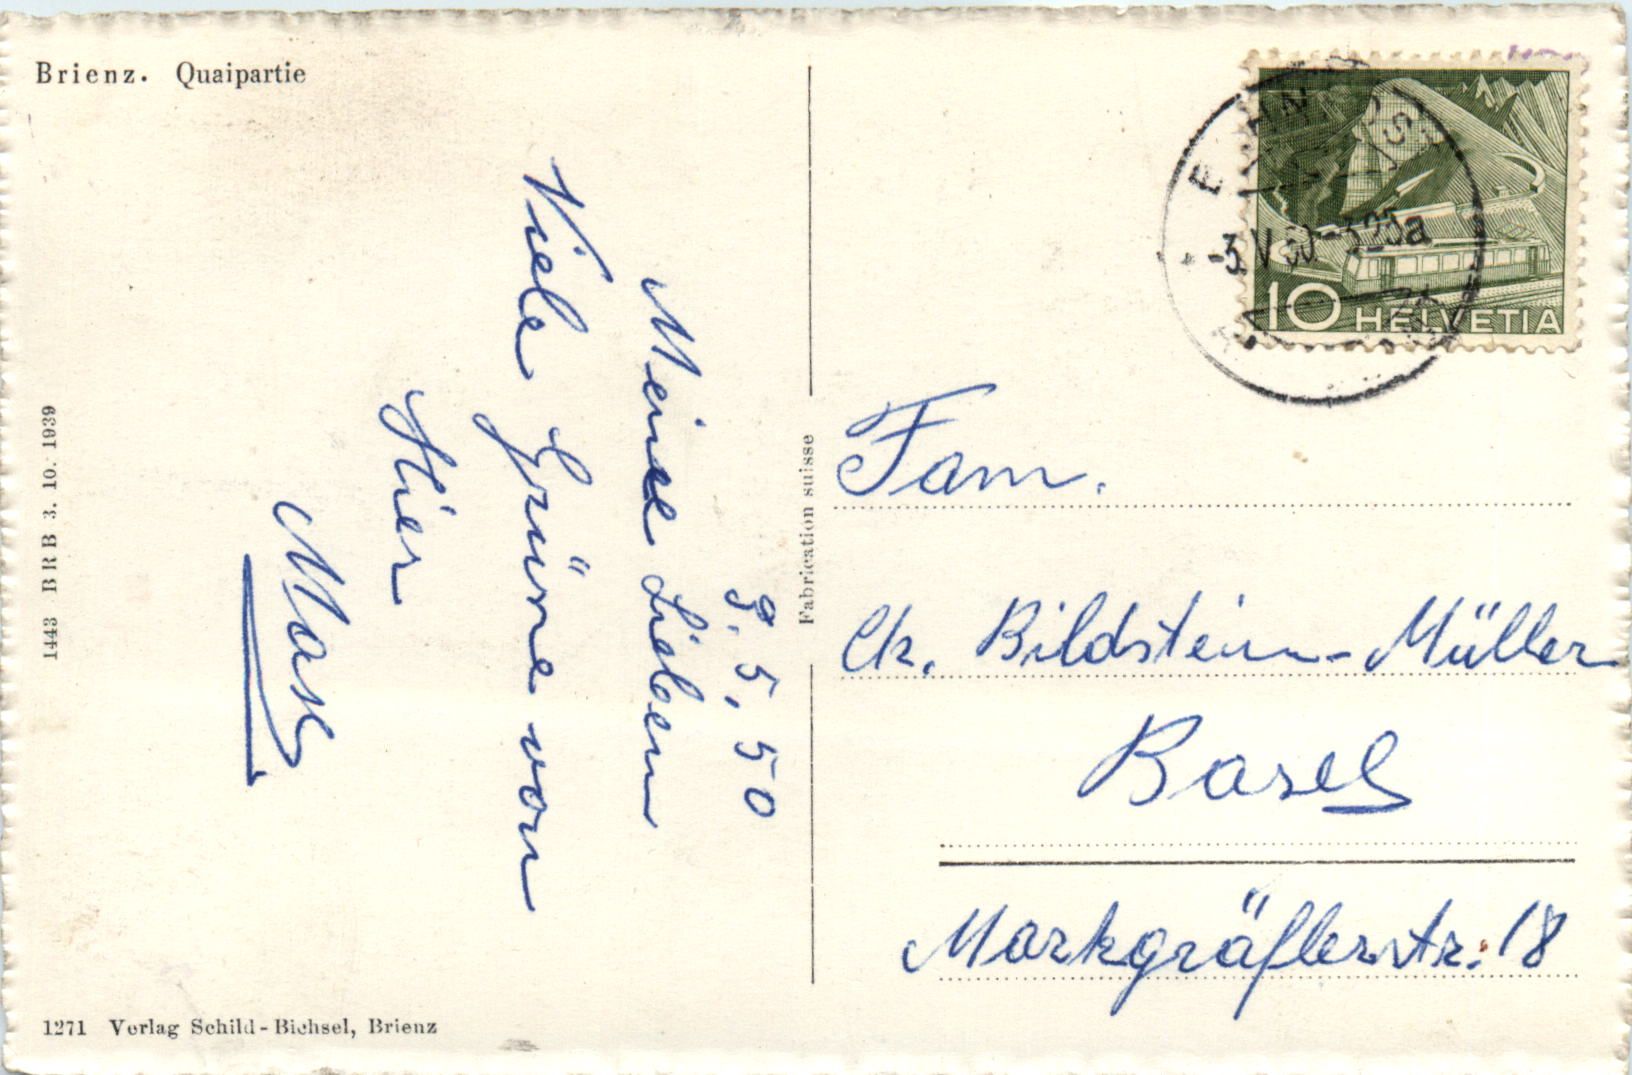 Brienz. Quaipartie
1443 BRB 3. 10. 1939
1271 Verlag Schild-Bichsel, Brienz
Fabrication suisse
3. 5. 50
Meine Lieben
Viele Grüsse von
Hier
Max
10 HELVETIA
-3.V.50.-
Fam.
Ch. Bildstein-Müller
Basel
Markgräflerstr. 18